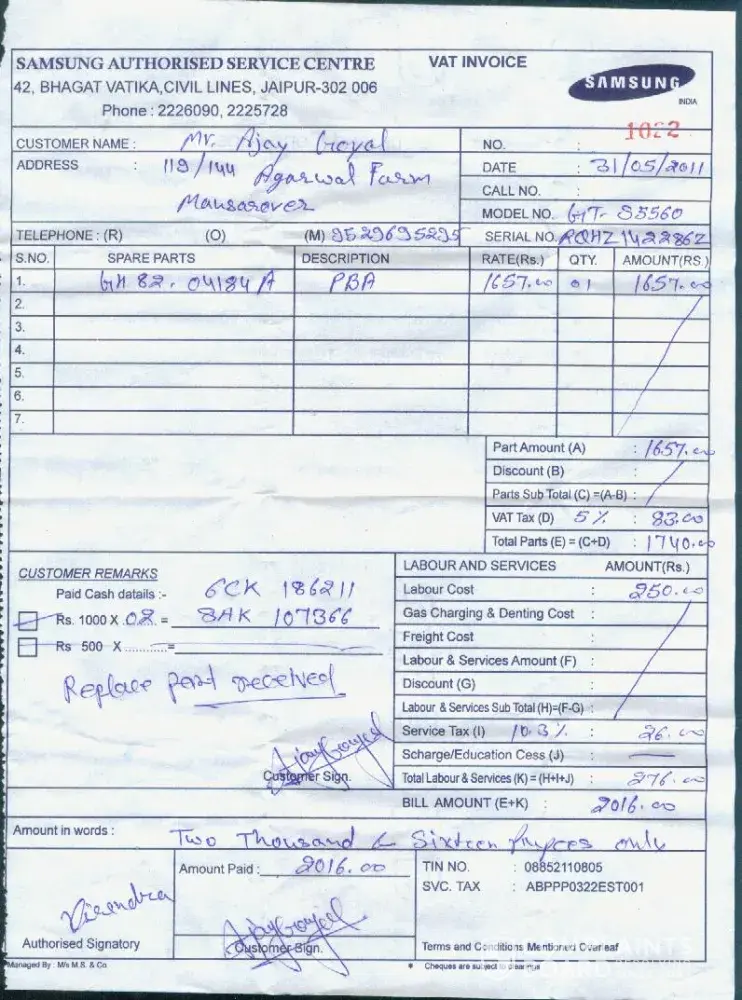 SAMSUNG AUTHORISED SERVICE CENTRE VAT INVOICE
42, BHAGAT VATIKA,CIVIL LINES, JAIPUR-302 006 SAMSUNG
Phone : 2226090, 2225728 INDIA
1022
CUSTOMER NAME : Mr. Ajay Goyal NO. :
ADDRESS : 119/144 Agarwal Farm DATE : 31/05/2011
Mansarover CALL NO. :
MODEL NO. GT- S5560
TELEPHONE : (R) (O) (M) 9529695295 SERIAL NO. RQHZ142286Z
S.NO. SPARE PARTS DESCRIPTION RATE(Rs.) QTY. AMOUNT(RS.)
1. GH 82. 04184 A PBA 1657.00 01 1657.00
2.
3.
4.
5.
6.
7.
Part Amount (A) : 1657.00
Discount (B) :
Parts Sub Total (C) =(A-B) :
VAT Tax (D) 5 % : 83.00
Total Parts (E) = (C+D) : 1740.00
CUSTOMER REMARKS LABOUR AND SERVICES AMOUNT(Rs.)
Paid Cash datails :- 6CK 186211 Labour Cost : 250.00
Rs. 1000 X .02. = 8AK 107366 Gas Charging & Denting Cost :
Rs 500 X ............= Freight Cost :
Labour & Services Amount (F) :
Replace part received Discount (G) :
Labour & Services Sub Total (H)=(F-G) :
Service Tax (I) 10.3 % : 26.00
Scharge/Education Cess (J) : —
Customer Sign. Total Labour & Services (K) = (H+I+J) : 276.00
BILL AMOUNT (E+K) : 2016.00
Amount in words : Two Thousand & Sixteen Rupees only
Amount Paid : 2016.00 TIN NO. : 08852110805
SVC. TAX : ABPPP0322EST001
Authorised Signatory Customer Sign. Terms and Conditions Mentioned Overleaf
Managed By : M/s M.S. & Co * Cheques are subject to clearings